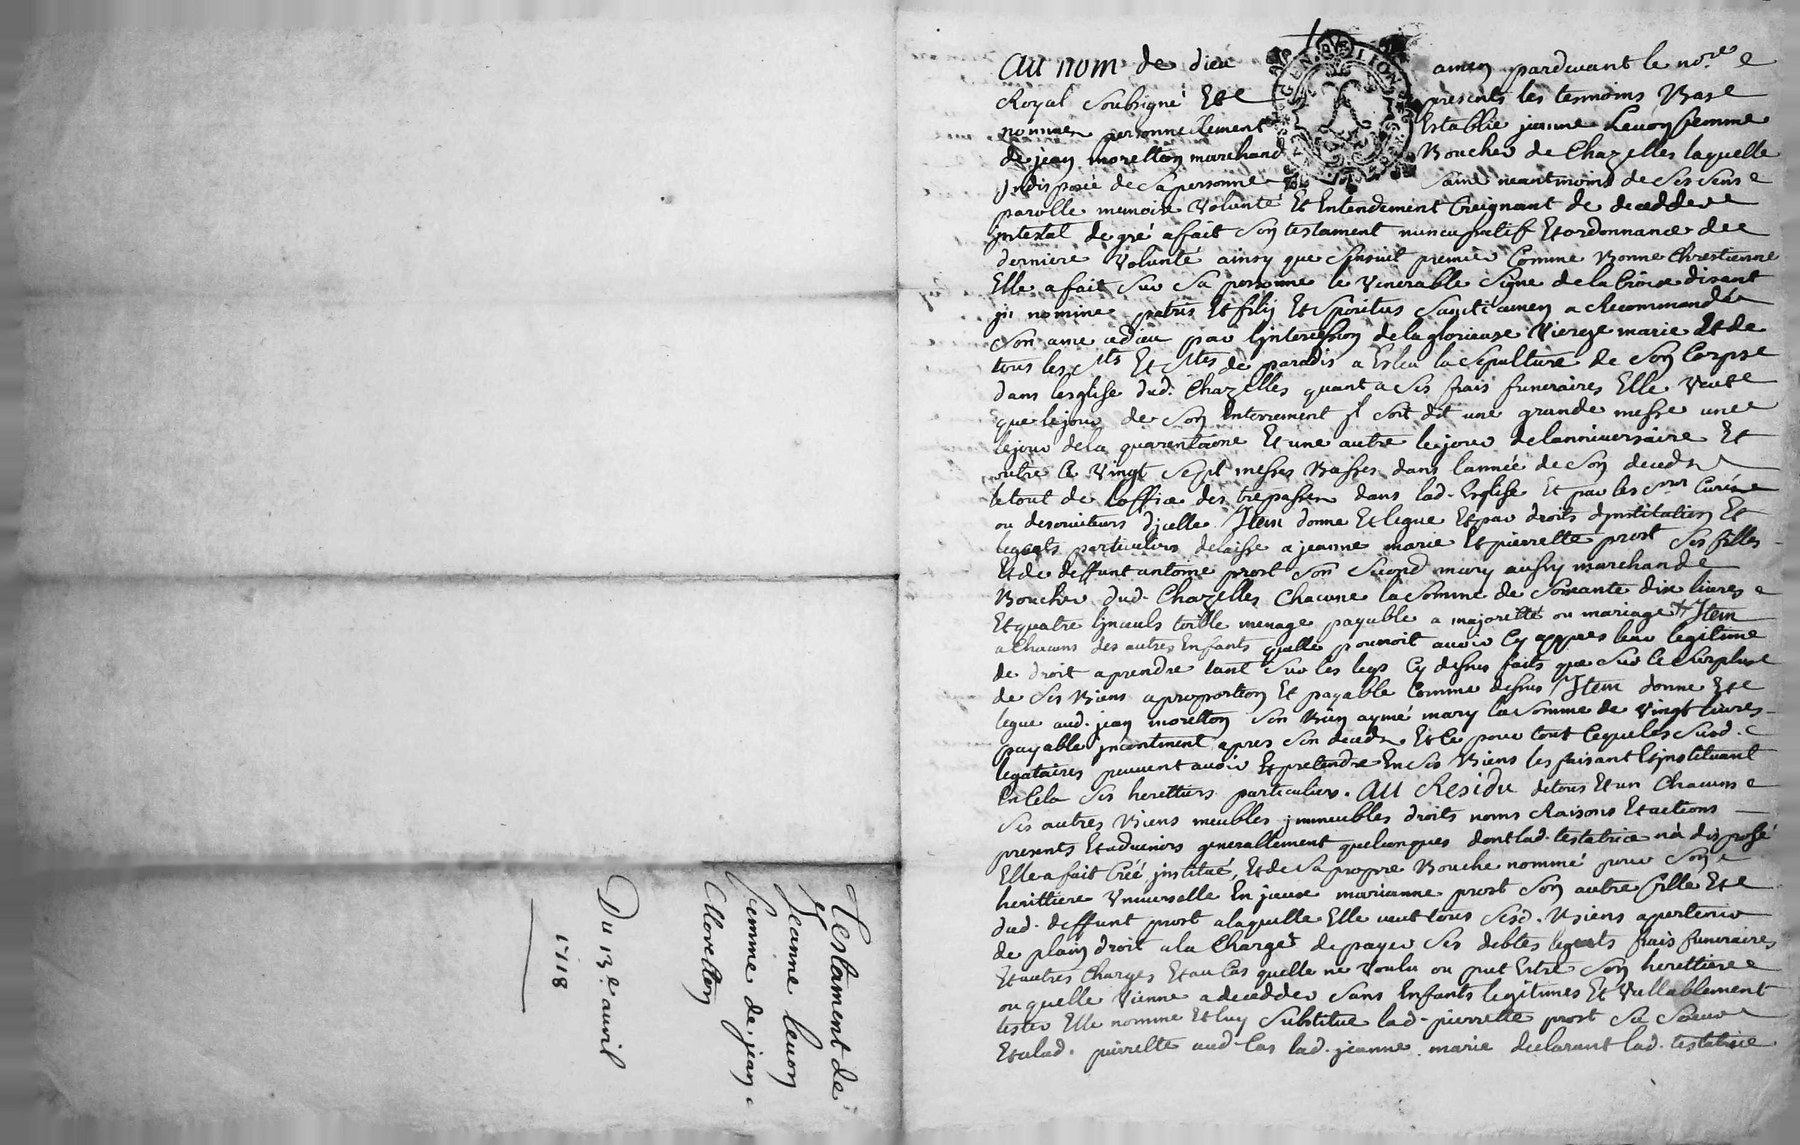 Testament de
Jeanne leuon
femme de jean
Morelton
Du 13e auvril
1718
GEN. D. LION
Au nom de dieu amen pardevant le nore
Royal Soubsigné Et presents les tesmoins Bas
nommes personnellement Establie jeanne Leuon femme
de jean morelton marchand Boucher de Chazelles laquelle
jndisposée de sa personne saine neantmoins de ses sens
parolle memoire volunté Et Entendement Creignant de deceddere
jntestat de gré a fait son testament nuncupatif Et ordonnance de
derniere volunté ainsy que sensuit premier Comme Bonne Chrestienne
Elle a fait sur sa personne le venerable signe de la Croix disant
jn nomine patris Et filij Et spiritus sancti amen a Recommandé
son ame a dieu par lintercession de la glorieuse vierge marie Et de
tous les sts Et stes de paradis a Esleu la sepulture de son Corps
dans lesglise dud. Chazelles quant a ses frais funeraires Elle veut
que le jour de son Enterrement jl soit dit une grande messe une
le jour de la quarentaine Et une autre le jour de lanniversaire Et
outre Ce vingt sept messes Basses dans lannée de son deceds
le tout de loffice des trepasses dans lad. Esglise Et par les srs Cures
ou desserviteurs djcelle. Jtem donne Et legue Et par droits djnstitution Et
legats particuliers delaisse a jeanne marie Et pierrette prost ses filles
Et de deffunt antoine prost son second mary aussy marchand
Boucher dud. Chazelles Chacune la somme de soixante dix livres
Et quatre linceuls toille menage payable a majorette ou mariage Jtem
a Chacuns des autres Enfants quelle pourroit avoir Cy appres leur legitime
de droit a prendre tant sur les legs Cy dessus faits que sur le surplus
de ses Biens a proportion Et payable Comme dessus Jtem donne Et
legue aud. jean morelton son Bien aymé mary la somme de vingt livres
payable jncontinent apres son deceds Et Ce pour tout Ce que les susd.
legataires peuvent avoir Et pretendre En ses Biens les faisant Et jnstituant
En Cela ses herettiers particuliers. Au Residu de tous Et un Chacuns
ses autres Biens meubles jmmeubles droits noms Raisons Et actions
presents Et advenirs generallement quelconques dont lad. testatrice na disposé
Elle a fait Créé jnstitué, Et de sa propre Bouche nommé pour son
herittiere universelle En jceux marianne prost son autre fille Et
dud. deffunt prost a laquelle Elle veut tous sesd. Biens apertenir
de plain droit a la Charge de payer ses debtes legats frais funeraires
Et autres Charges Et au Cas quelle ne voulu ou put Estre son herettiere
ou quelle vienne a deceddér sans Enfants legitimes Et vallablement
tester Elle nomme Et luy substitue lad. pierrette prost sa soeur
Et a lad. pierrette aud. Cas lad. jeanne marie declarant lad. testatrice